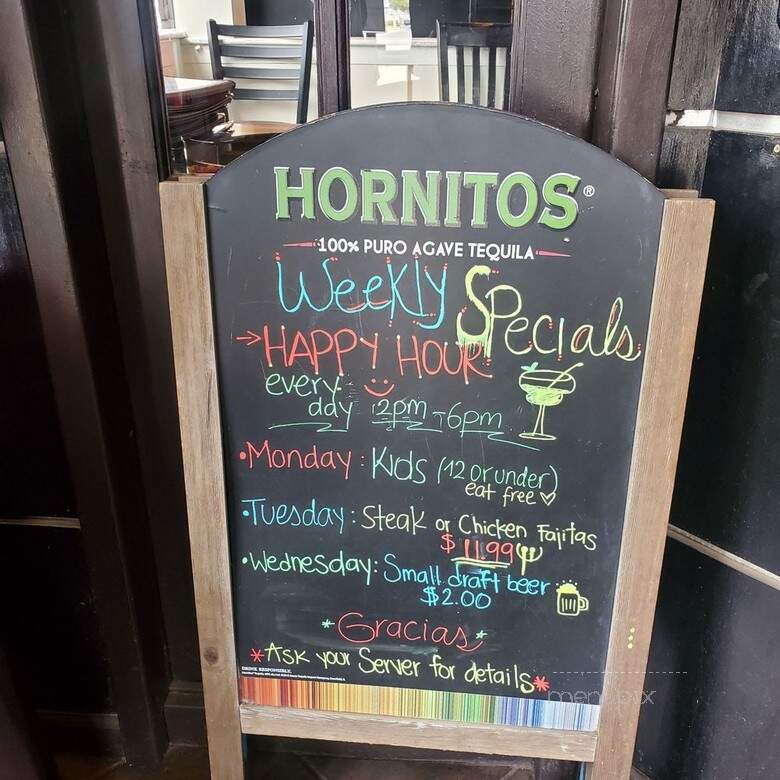 HORNITOS®
100% PURO AGAVE TEQUILA
Weekly Specials
→HAPPY HOUR!
every day 2pm-6pm
•Monday: Kids (12 or under)
eat free ♡
•Tuesday: Steak or Chicken Fajitas
$11.99
•Wednesday: Small draft beer
$2.00
*Gracias*
*Ask your Server for details*
DRINK RESPONSIBLY.